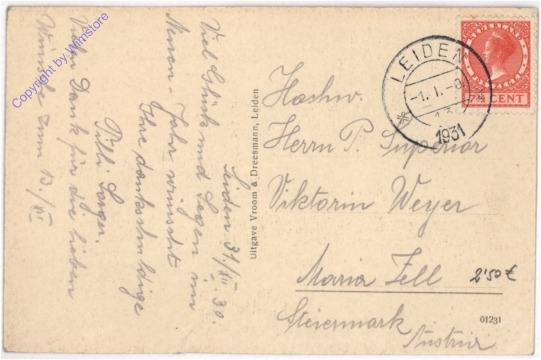 Leiden 31/XII. 30.
Viel Glück und Segen im
Neuen-Jahr wünscht
Ihre dankschuldige
Pilli
Vielen Dank für die lieben
Wünsche zum 13./XII
Uitgave Vroom & Dreesmann, Leiden
LEIDEN
-1. I. -8
1931
NEDERLAND
7½ CENT
Hochw.
Herrn P. Superior
Viktorin Weyer
Maria Zell
Steiermark
Austria
2'50 €
01231
Copyright by Wimstore